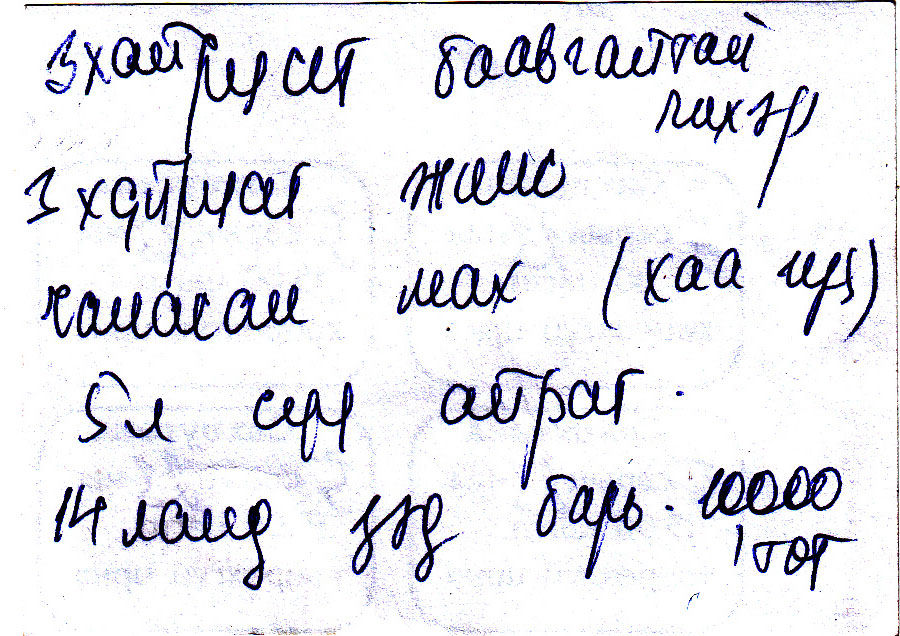 3 хайрцаг баавгайтай
чихэр
3 хайрцаг жимс
чанасан мах (хаа гуя)
5л сүү айраг.
14 ламд барь. 10000
төг